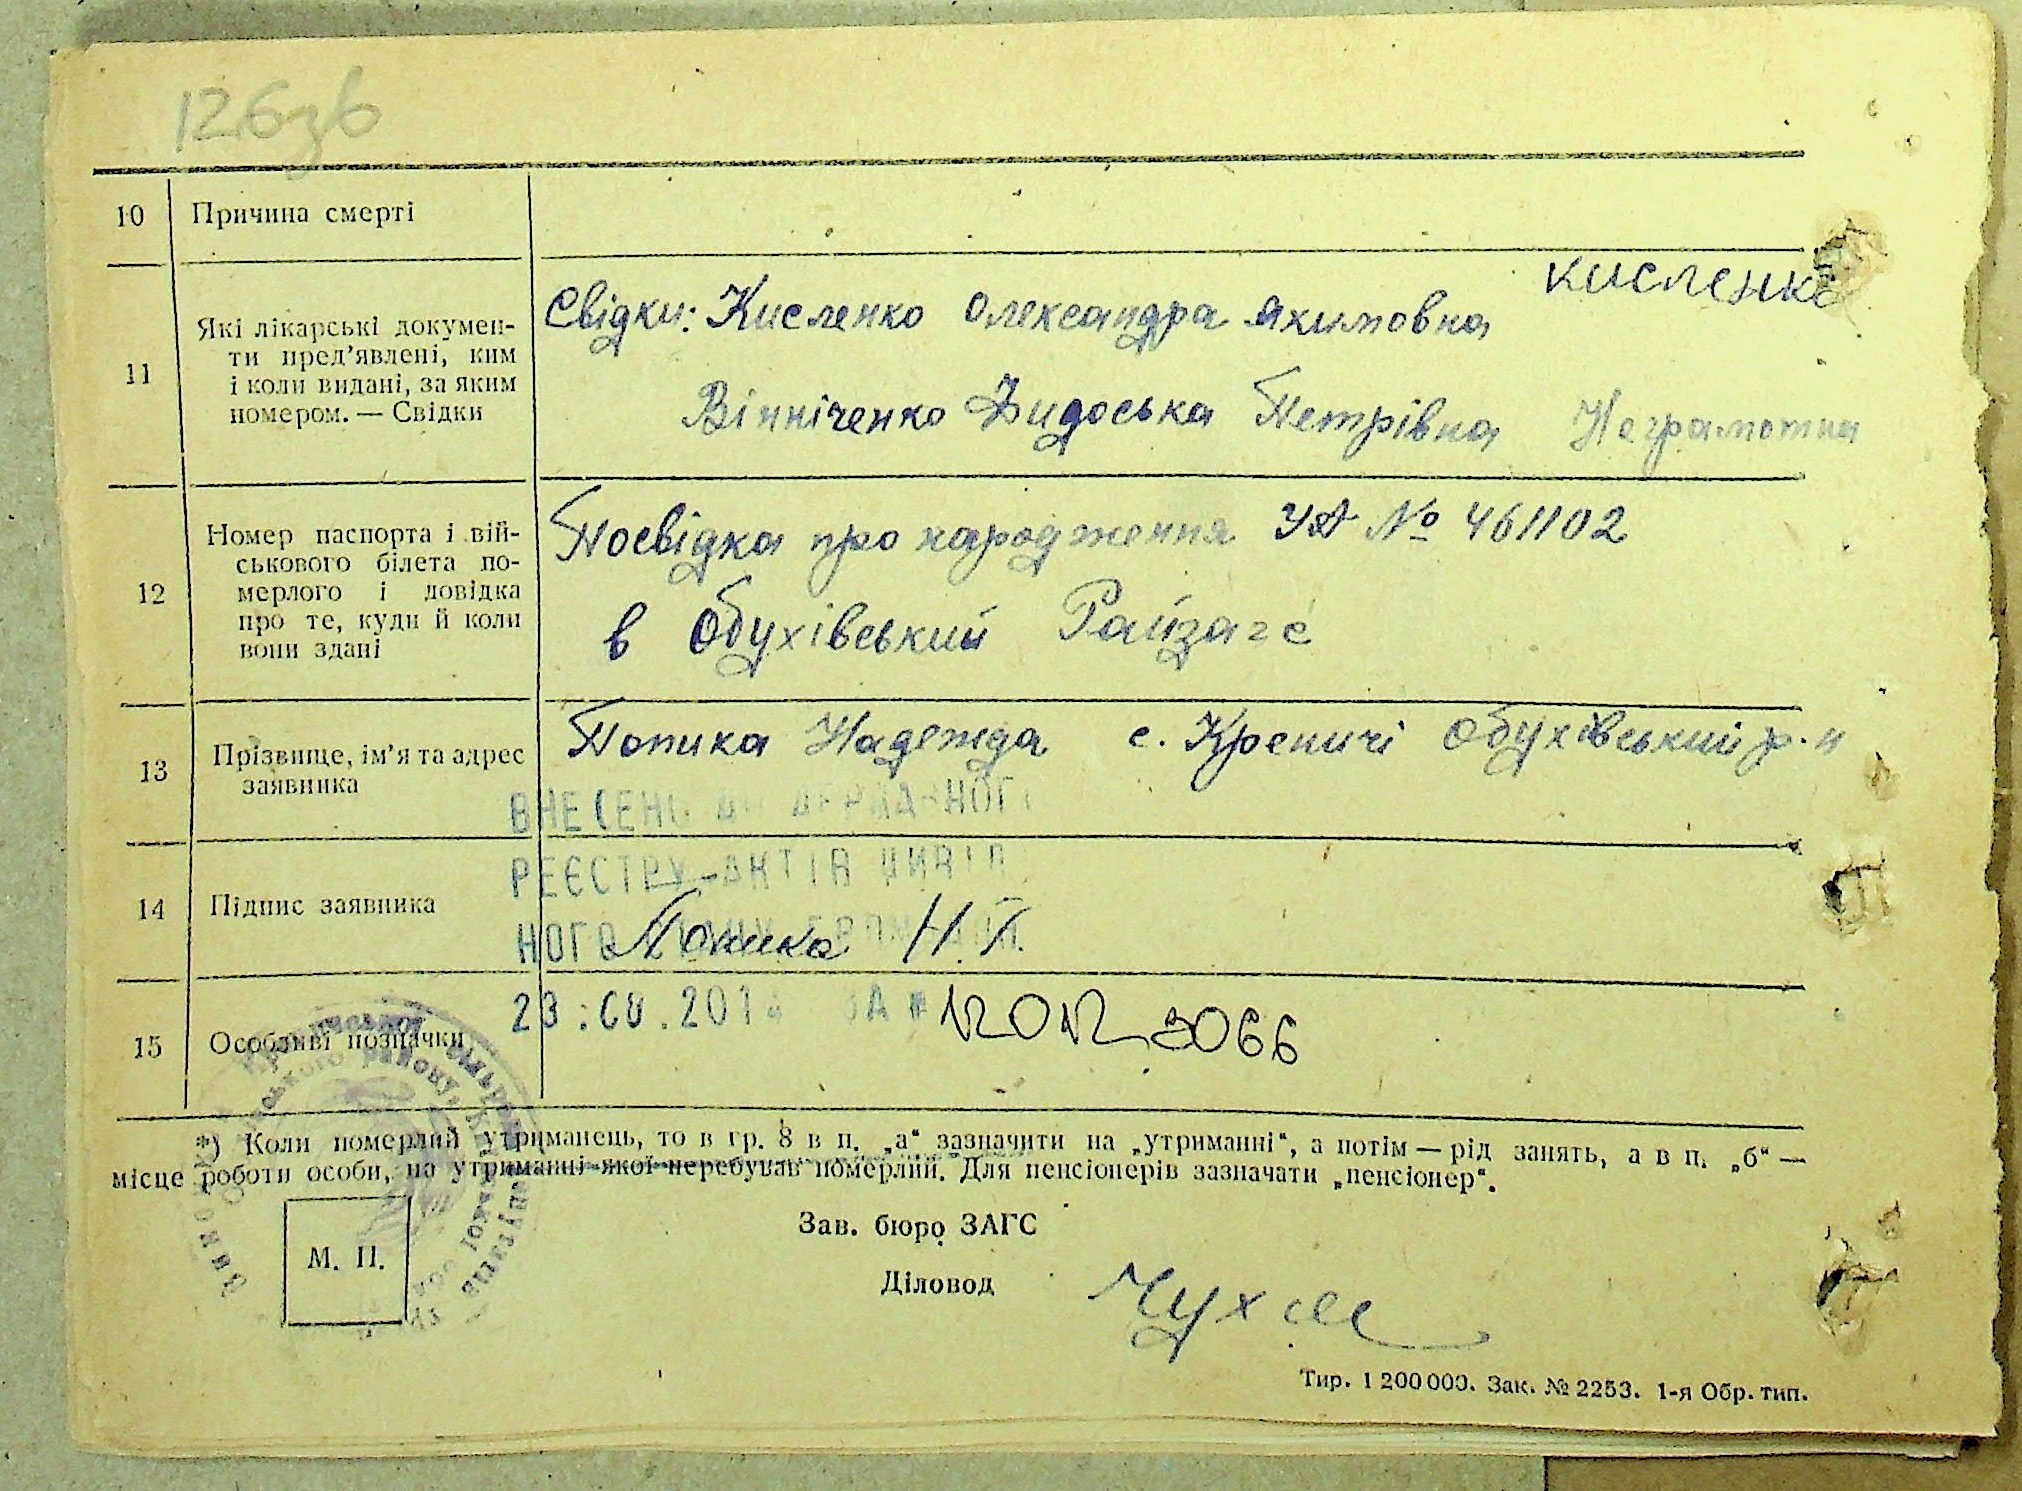 126зв
10 Причина смерті
11 Які лікарські докумен-
ти пред’явлені, ким
і коли видані, за яким
номером. — Свідки
Кисленко
Свідки: Кисленко Олександра Якимовна
Вінніченко Видоська Петрівна Неграмотна
12 Номер паспорта і вій-
ськового білета по-
мерлого і довідка
про те, куди й коли
вони здані
Посвідка про народження УА № 461102
в Обухівський Райзагс
13 Прізвище, ім’я та адрес
заявника
Попика Надежда с. Креничі Обухівський р-н
14 Підпис заявника
Попика Н. П.
ВНЕСЕНО ДО ДЕРЖАВНОГО
РЕЄСТРУ АКТІВ ЦИВІЛЬ
НОГО СТАНУ ГРОМАДЯН
15 Особливі позначки
ЗА № 12012 3066
*) Коли померлий утриманець, то в гр. 8 в п. „а“ зазначити на „утриманні“, а потім — рід занять, а в п. „б“ —
місце роботи особи, на утриманні якої перебував померлий. Для пенсіонерів зазначати „пенсіонер“.
М. П.
Зав. бюро ЗАГС
Діловод
Тир. 1 200 000. Зак. № 2253. 1-я Обр. тип.